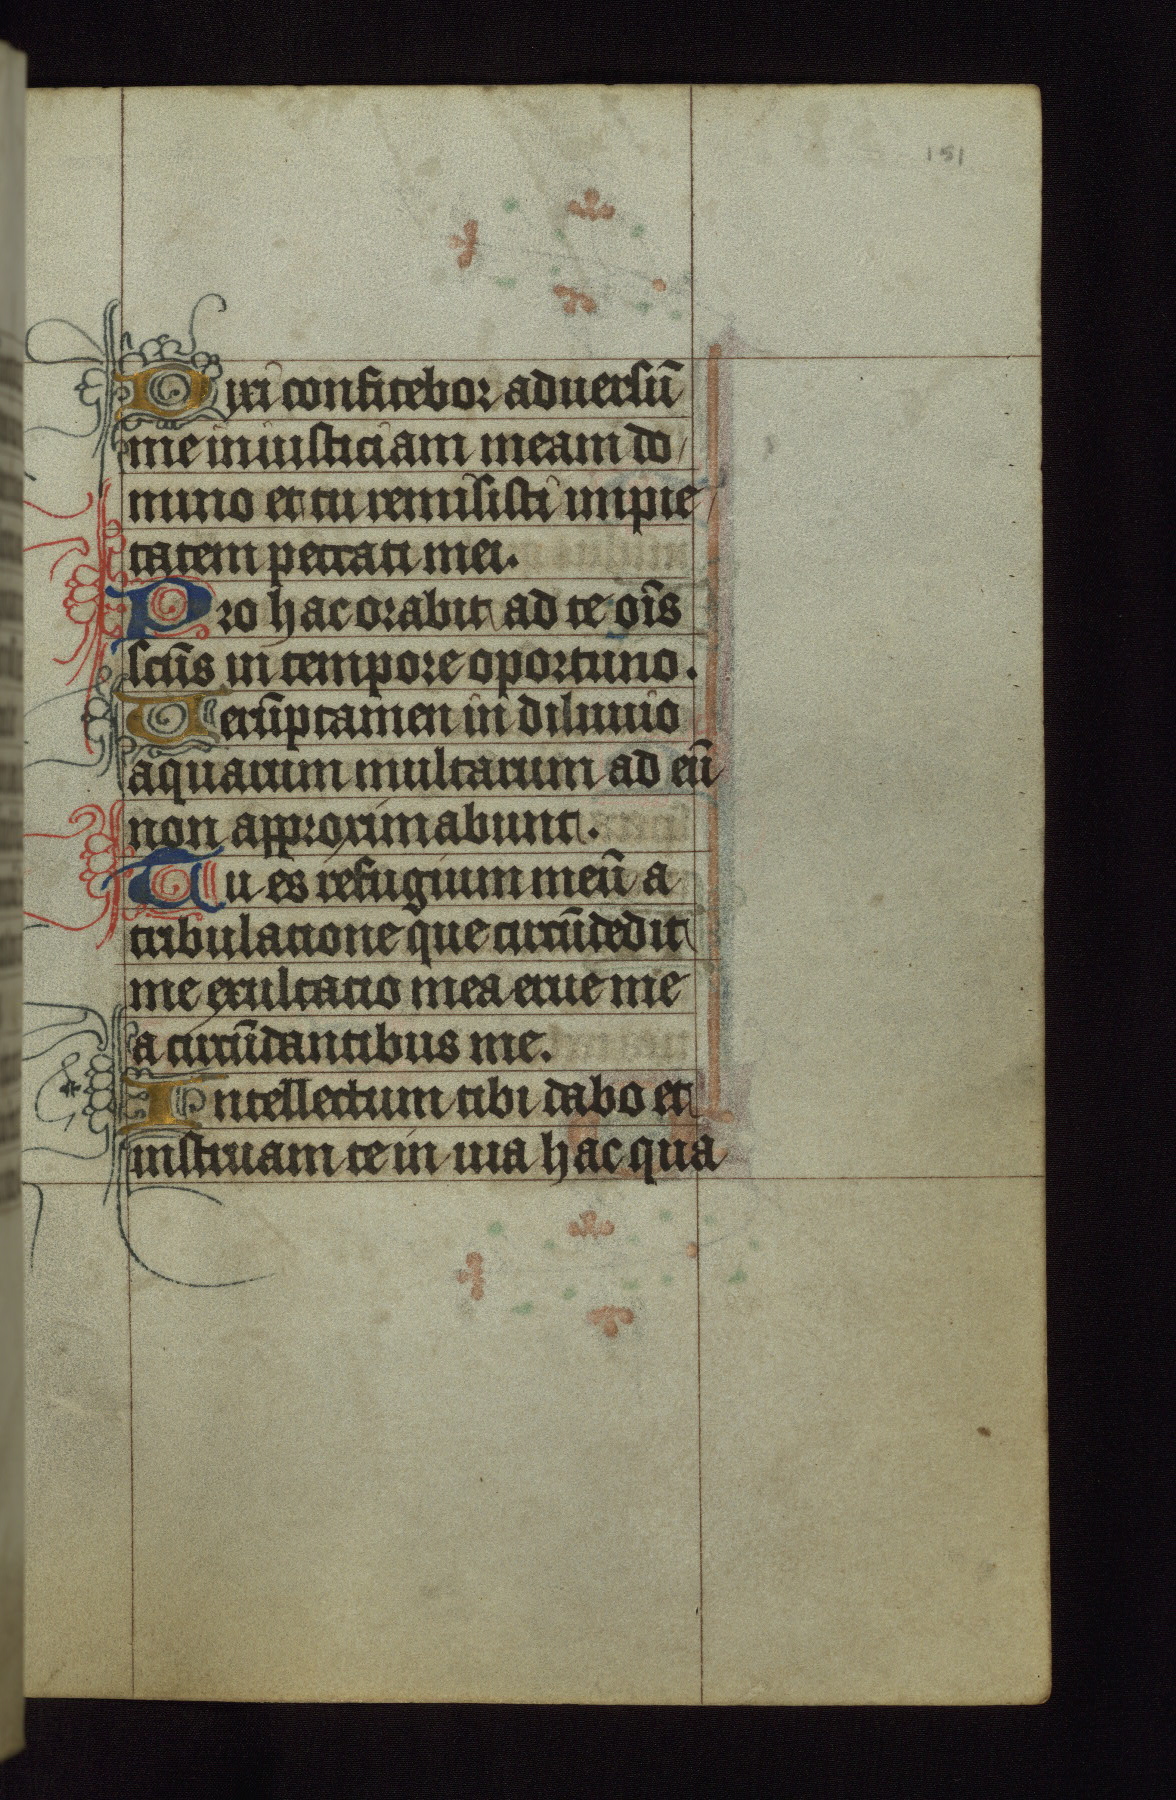 151
Dixi confitebor aduersū
me iniusticiam meam do/
mino et tu remisisti impie/
tatem peccati mei.
Pro hac orabit ad te oīs
scūs in tempore oportuno.
Uerūptamen in diluuio
aquarum multarum ad eū
non approximabunt.
Tu es refugium meū a
tribulatione que circūdedit
me exultatio mea erue me
a circūdantibus me.
Intellectum tibi dabo et
instruam te in uia hac qua